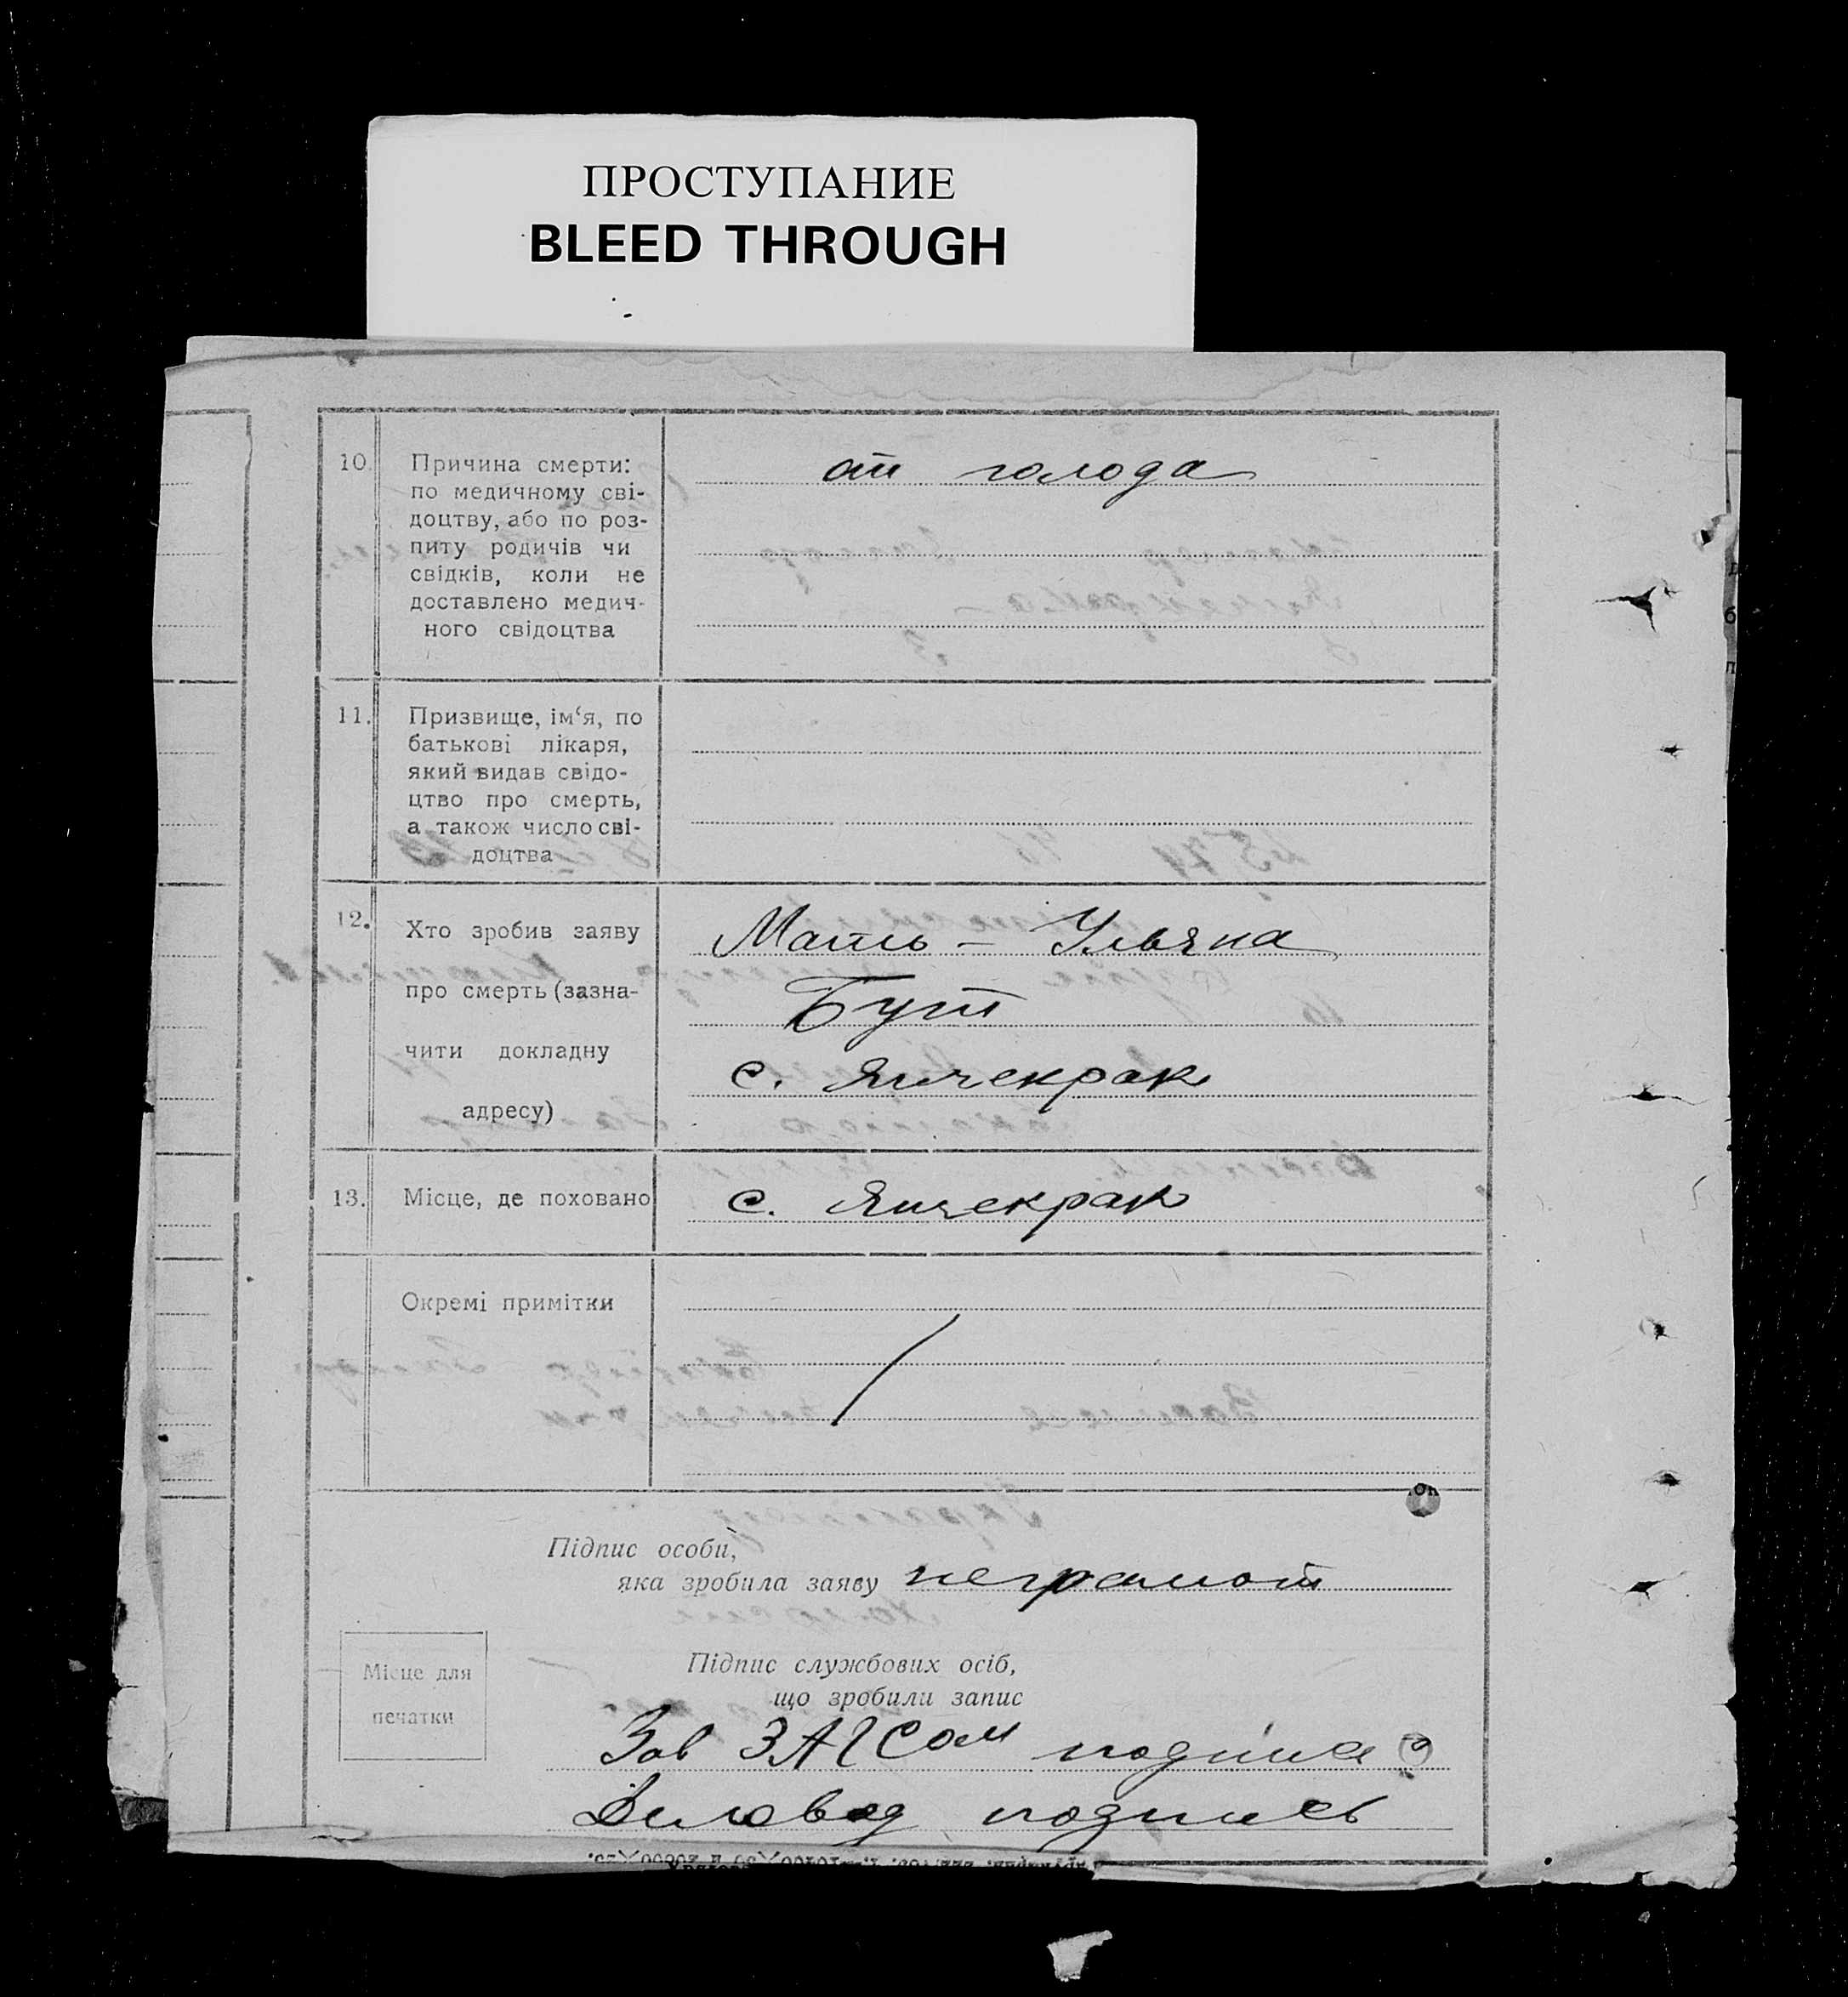 ПРОСТУПАНИЕ
BLEED THROUGH
10. Причина смерти:
по медичному сві-
доцтву, або по роз-
питу родичів чи
свідків, коли не
доставлено медич-
ного свідоцтва
от голода
11. Призвище, ім‘я, по
батькові лікаря,
який видав свідо-
цтво про смерть,
а також число сві-
доцтва
12. Хто зробив заяву
про смерть (зазна-
чити докладну
адресу)
Мать – Ульяна
Бут
с. Янчекрак
13. Місце, де поховано
с. Янчекрак
Окремі примітки
Підпис особи,
яка зробила заяву неграмот
Місце для
печатки
Підпис службових осіб,
що зробили запис
Зав ЗАГСом подпись
Діловод подпись